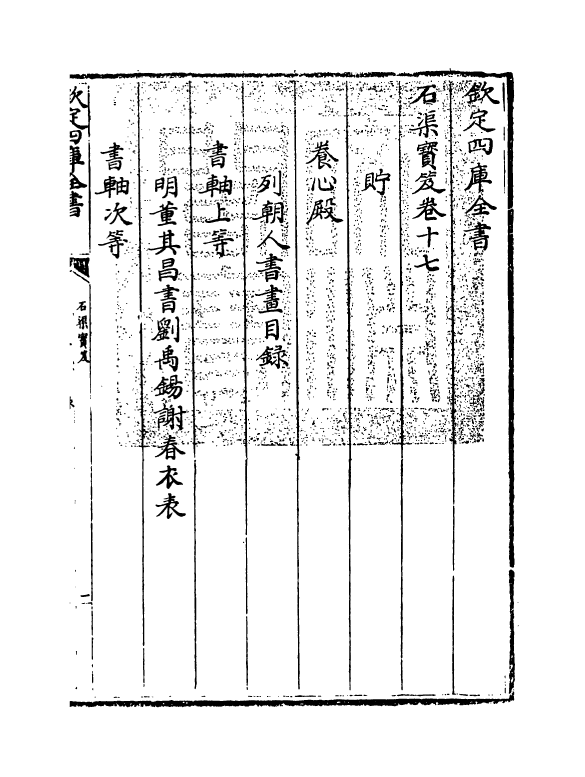 欽定四庫全書
石渠寶笈卷十七
貯
養心殿
列朝人書畫目録
書軸上等
明董其昌書劉禹錫謝春衣表
書軸次等
欽定四庫全書
石渠寶笈